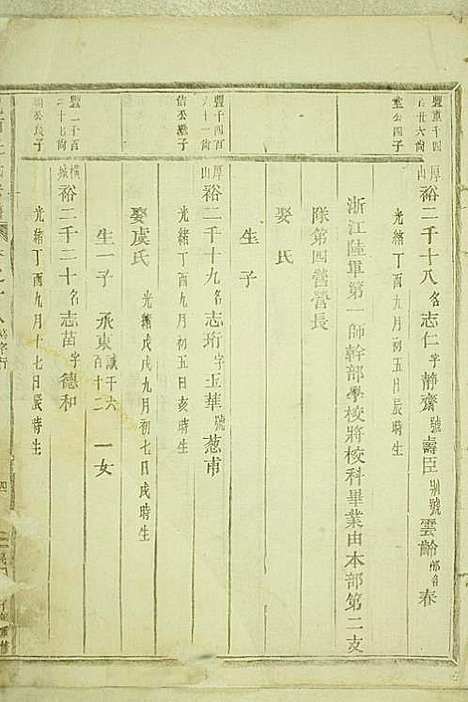 豐惠千四
百廿六尚
重公四子
厚山 裕二千十八 名志仁 字靜齋 號壽臣 別號雲齡 春
光緒丁酉九月初五日辰時生
浙江陸軍第一師幹部學校將校科畢業由本部第二支
隊第四營營長
娶氏
生子
豐千四百
六十一尚
佶公繼子
厚山 裕二千十九 名志珩 字玉華 號蔥甫
光緒丁酉九月初五日亥時生
娶虞氏 光緒戊戌九月初七日戌時生
生一子 承東 誠千六百十二 一女
豐一千百
二十七尚
公長子
橫城 裕二千二十 名志苗 字德和
光緒丁酉九月十七日辰時生